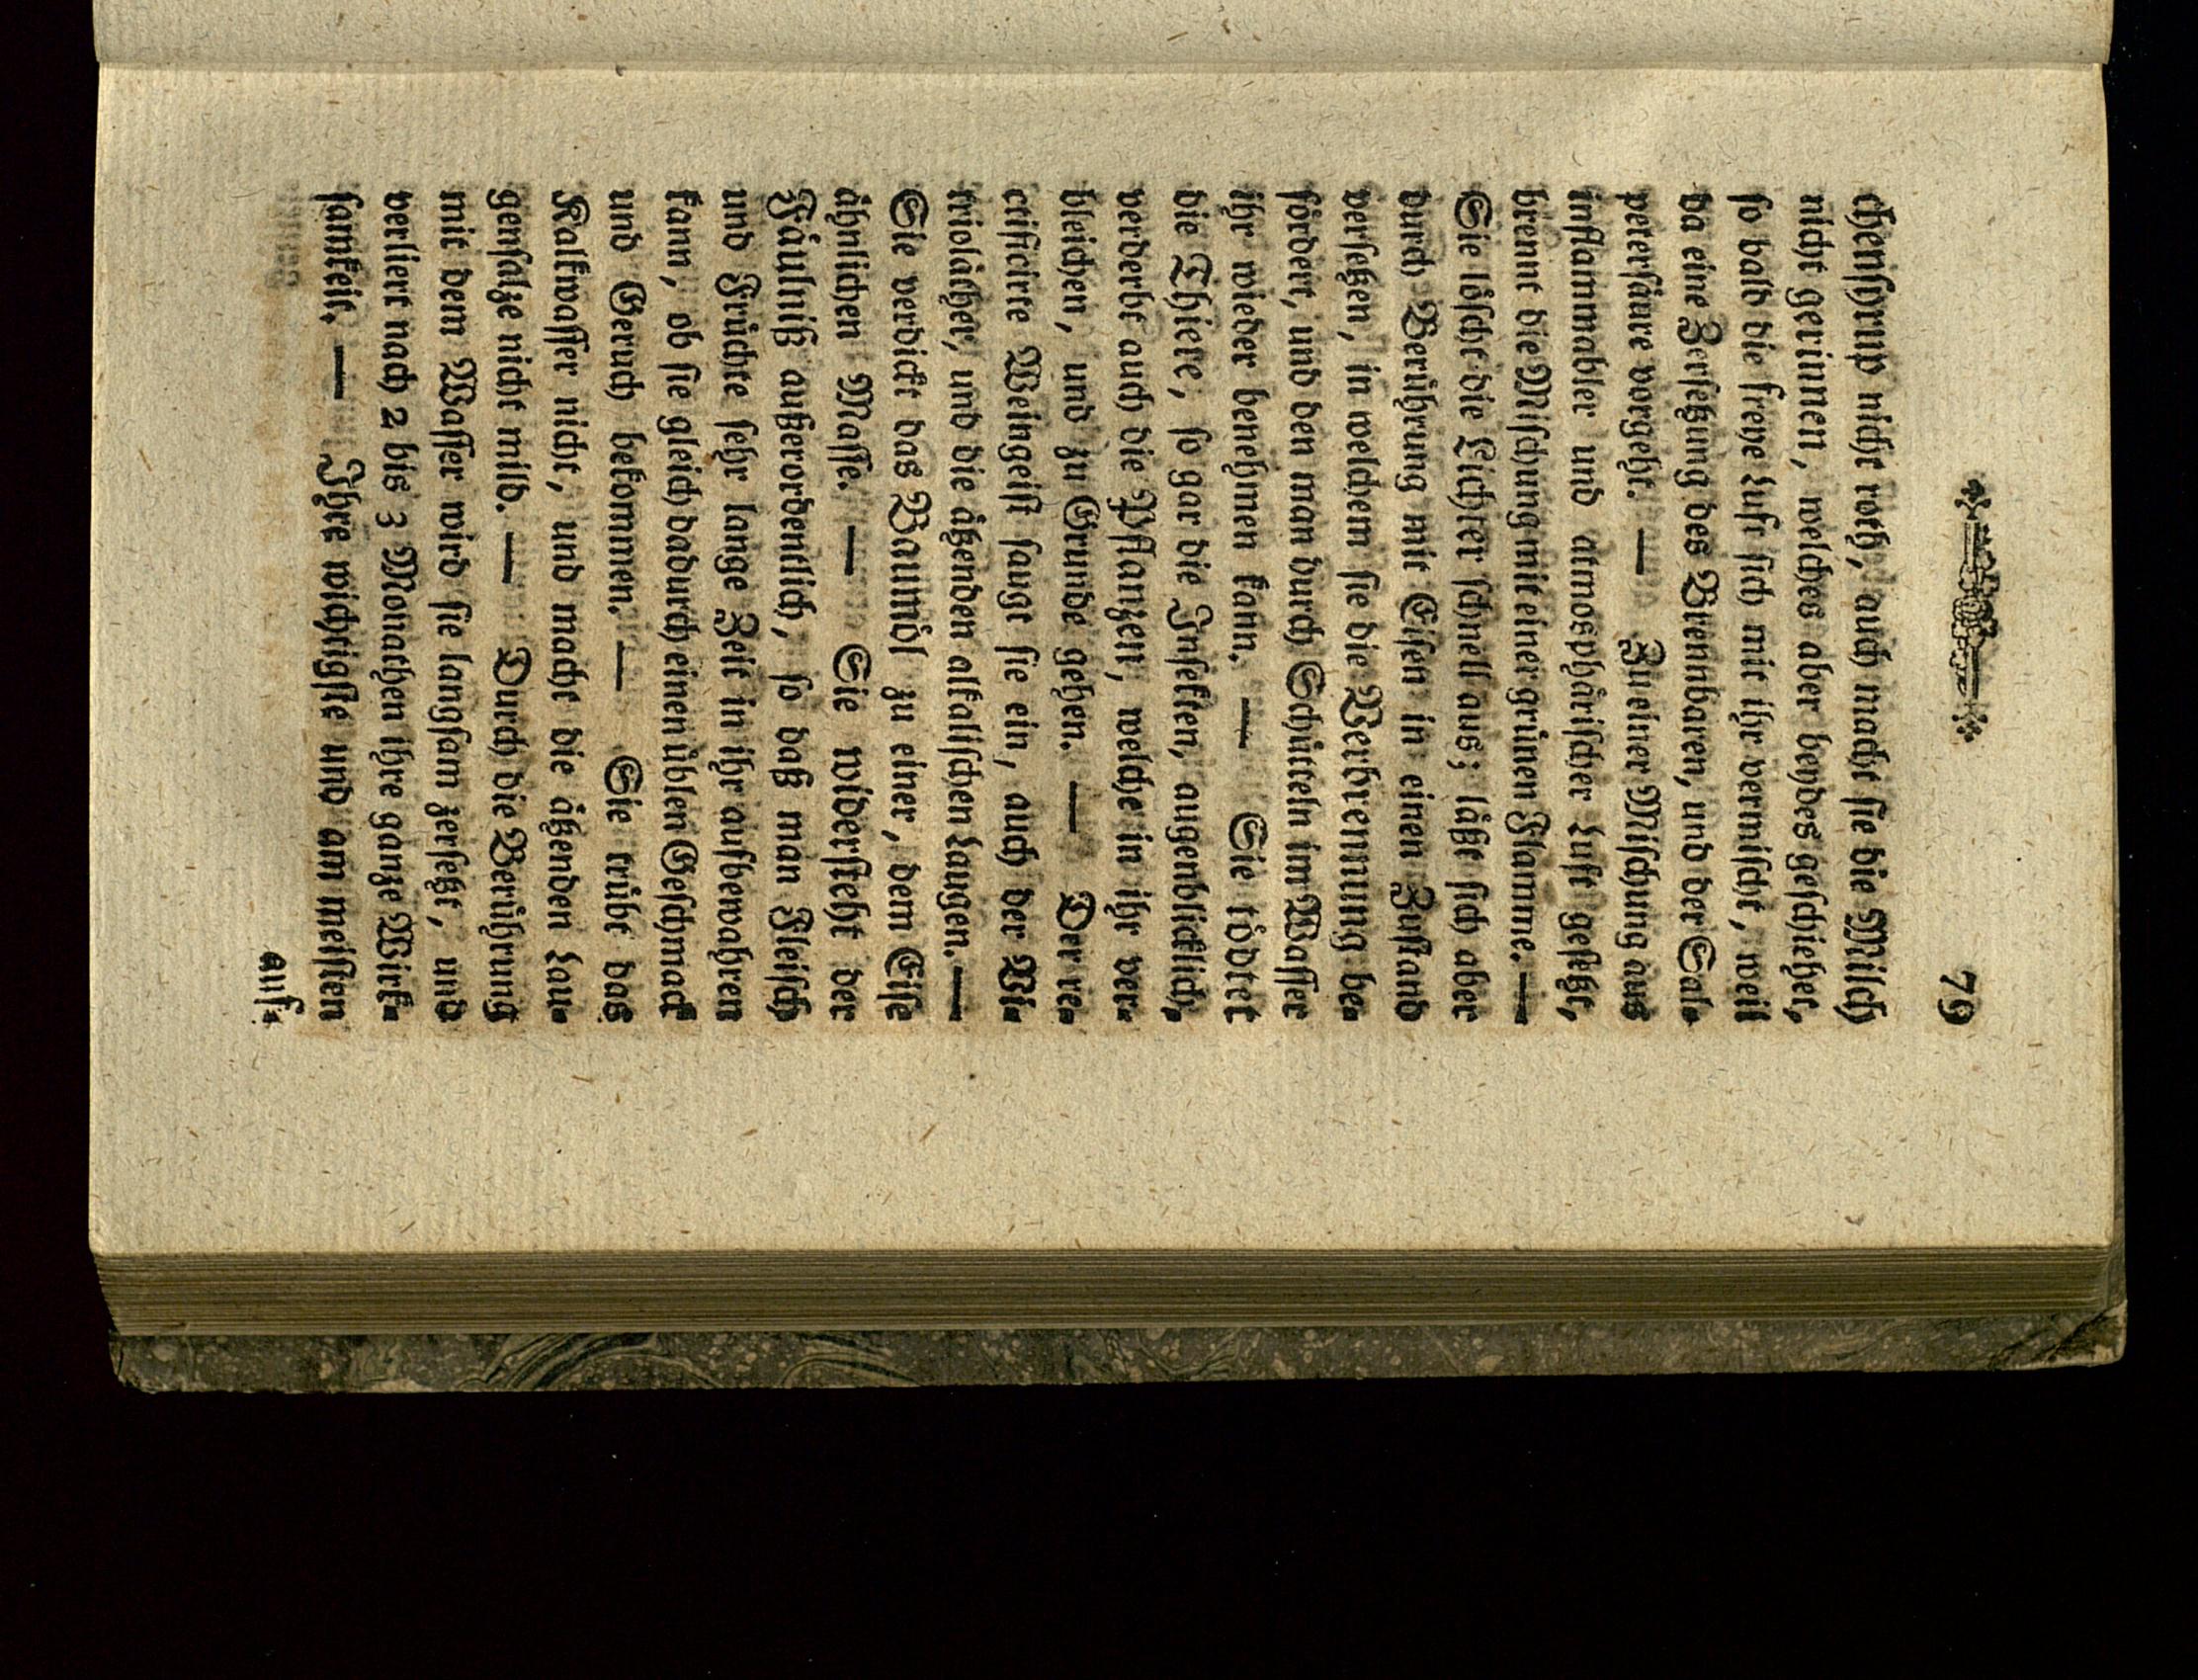 79
chensyrup nicht roth, auch macht sie die Milch
nicht gerinnen, welches aber beydes geschiehet,
so bald die freye Luft sich mit ihr vermischt, weil
da eine Zersetzung des Brennbaren, und der Sal-
petersäure vorgeht. — Zu einer Mischung aus
inflammabler und atmosphärischer Luft gesetzt,
brennt die Mischung mit einer grünen Flamme. —
Sie löscht die Lichter schnell aus; läßt sich aber
durch Berührung mit Eisen in einen Zustand
versetzen, in welchem sie die Verbrennung be-
fördert, und den man durch Schütteln im Wasser
ihr wieder benehmen kann. — Sie tödtet
die Thiere, so gar die Insekten, augenblicklich,
verderbt auch die Pflanzen, welche in ihr ver-
bleichen, und zu Grunde gehen. — Der re-
ctificirte Weingeist saugt sie ein, auch der Vi-
triolächer, und die ätzenden alkalischen Laugen. —
Sie verdickt das Baumöl zu einer, dem Eise
ähnlichen Masse. — Sie widersteht der
Fäulniß außerordentlich, so daß man Fleisch
und Früchte sehr lange Zeit in ihr aufbewahren
kann, ob sie gleich dadurch einen üblen Geschmack
und Geruch bekommen. — Sie trübt das
Kalkwasser nicht, und macht die ätzenden Lau-
gensalze nicht mild. — Durch die Berührung
mit dem Wasser wird sie langsam zersetzt, und
verliert nach 2 bis 3 Monathen ihre ganze Wirk-
samkeit. — Ihre wichtigste und am meisten
auf-